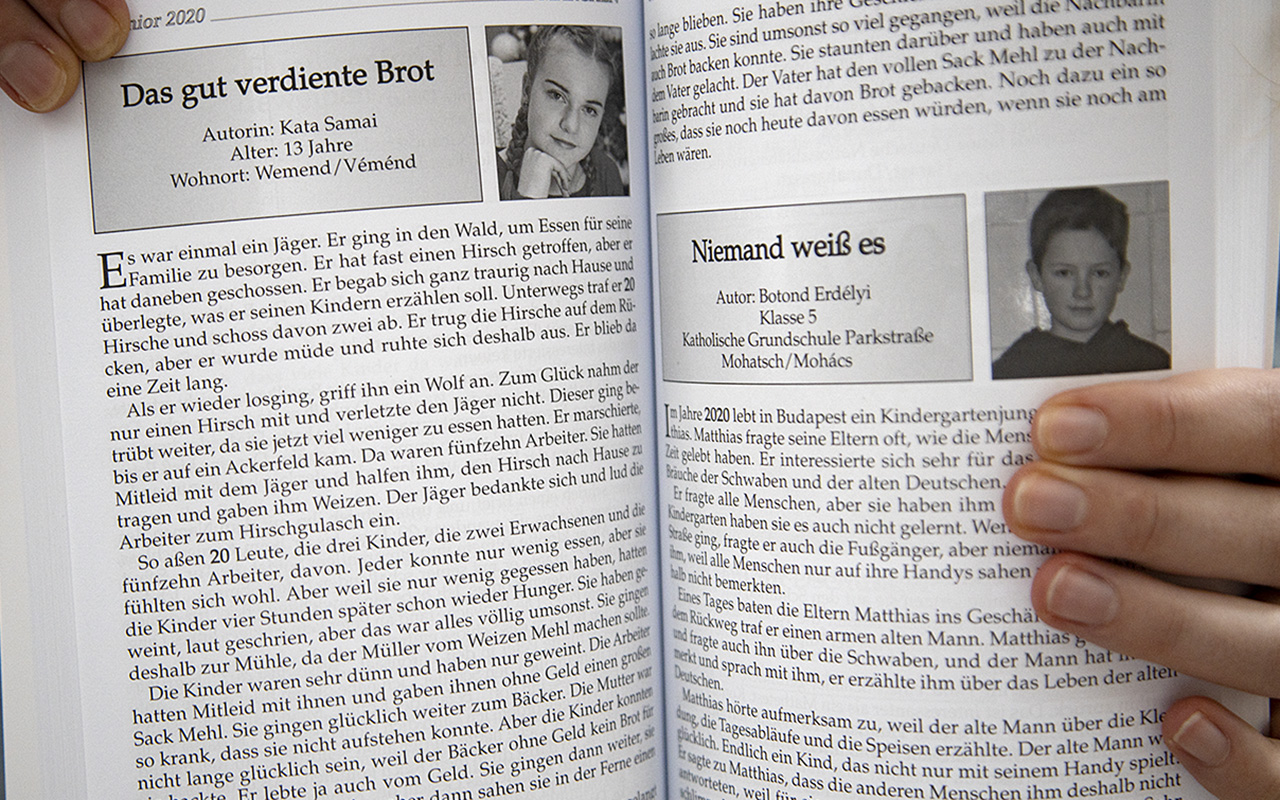 nior 2020
Das gut verdiente Brot
Autorin: Kata Samai
Alter: 13 Jahre
Wohnort: Wemend/Véménd
Es war einmal ein Jäger. Er ging in den Wald, um Essen für seine
Familie zu besorgen. Er hat fast einen Hirsch getroffen, aber er
hat daneben geschossen. Er begab sich ganz traurig nach Hause und
überlegte, was er seinen Kindern erzählen soll. Unterwegs traf er 20
Hirsche und schoss davon zwei ab. Er trug die Hirsche auf dem Rü-
cken, aber er wurde müde und ruhte sich deshalb aus. Er blieb da
eine Zeit lang.
Als er wieder losging, griff ihn ein Wolf an. Zum Glück nahm der
nur einen Hirsch mit und verletzte den Jäger nicht. Dieser ging be-
trübt weiter, da sie jetzt viel weniger zu essen hatten. Er marschierte,
bis er auf ein Ackerfeld kam. Da waren fünfzehn Arbeiter. Sie hatten
Mitleid mit dem Jäger und halfen ihm, den Hirsch nach Hause zu
tragen und gaben ihm Weizen. Der Jäger bedankte sich und lud die
Arbeiter zum Hirschgulasch ein.
So aßen 20 Leute, die drei Kinder, die zwei Erwachsenen und die
fünfzehn Arbeiter, davon. Jeder konnte nur wenig essen, aber sie
fühlten sich wohl. Aber weil sie nur wenig gegessen haben, hatten
die Kinder vier Stunden später schon wieder Hunger. Sie haben ge-
weint, laut geschrien, aber das war alles völlig umsonst. Sie gingen
deshalb zur Mühle, da der Müller vom Weizen Mehl machen sollte.
Die Kinder waren sehr dünn und haben nur geweint. Die Arbeiter
hatten Mitleid mit ihnen und gaben ihnen ohne Geld einen großen
Sack Mehl. Sie gingen glücklich weiter zum Bäcker. Die Mutter war
so krank, dass sie nicht aufstehen konnte. Aber die Kinder konnten
nicht lange glücklich sein, weil der Bäcker ohne Geld kein Brot für
Er lebte ja auch vom Geld. Sie gingen dann weiter, sie
dann sahen sie in der Ferne einen
so lange blieben. Sie haben ihre
sie aus. Sie sind umsonst so viel gegangen, weil die Nachbarin
auch Brot backen konnte. Sie staunten darüber und haben auch mit
dem Vater gelacht. Der Vater hat den vollen Sack Mehl zu der Nach-
barin gebracht und sie hat davon Brot gebacken. Noch dazu ein so
großes, dass sie noch heute davon essen würden, wenn sie noch am
Leben wären.
Niemand weiß es
Autor: Botond Erdélyi
Klasse 5
Katholische Grundschule Parkstraße
Mohatsch/Mohács
Im Jahre 2020 lebt in Budapest ein Kindergartenjung
thias. Matthias fragte seine Eltern oft, wie die Mens
Zeit gelebt haben. Er interessierte sich sehr für das
Bräuche der Schwaben und der alten Deutschen.
Er fragte alle Menschen, aber sie haben ihm
Kindergarten haben sie es auch nicht gelernt. Wen
Straße ging, fragte er auch die Fußgänger, aber nieman
ihm, weil alle Menschen nur auf ihre Handys sahen
halb nicht bemerkten.
Eines Tages baten die Eltern Matthias ins Geschä
dem Rückweg traf er einen armen alten Mann. Matthias g
und fragte auch ihn über die Schwaben, und der Mann hat
merkt und sprach mit ihm, er erzählte ihm über das Leben der alten
Deutschen.
Matthias hörte aufmerksam zu, weil der alte Mann über die Kle
dung, die Tagesabläufe und die Speisen erzählte. Der alte Mann w
glücklich. Endlich ein Kind, das nicht nur mit seinem Handy spielt.
Er sagte zu Matthias, dass die anderen Menschen ihm deshalb nicht
antworteten, weil für